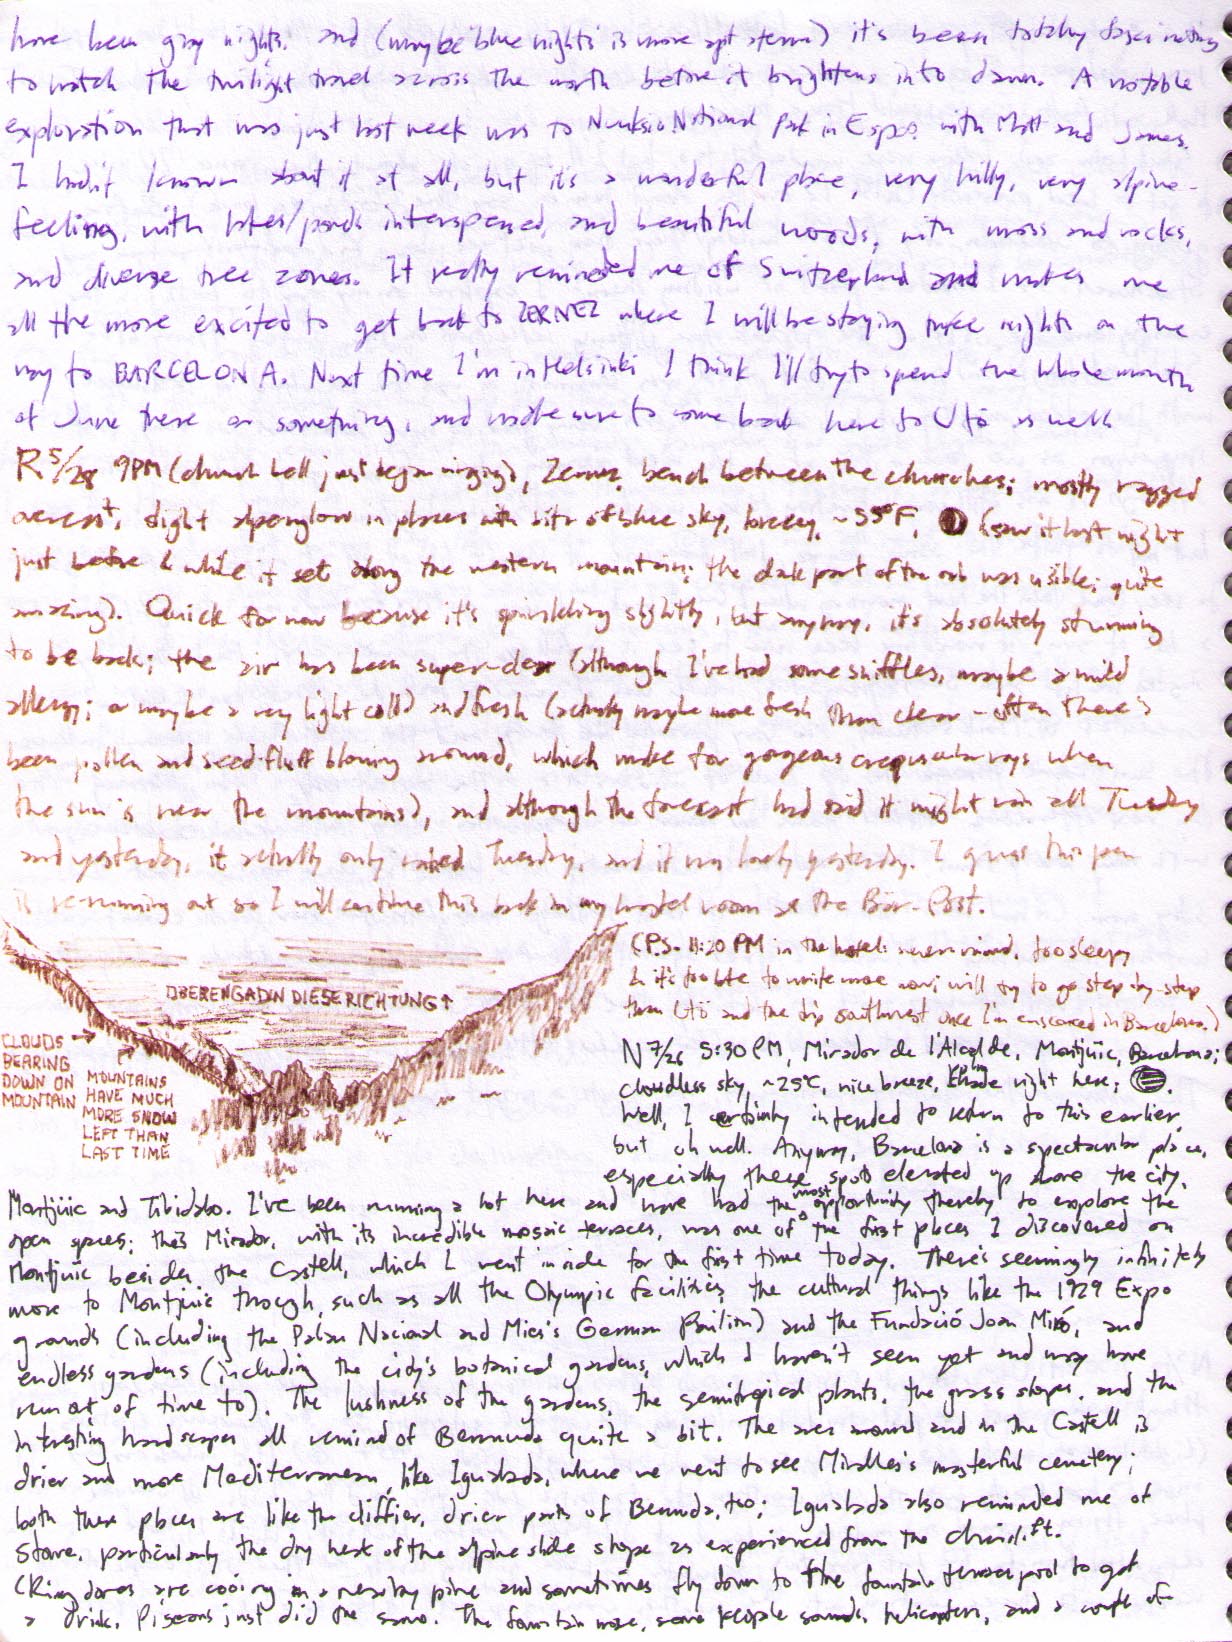 have been gray nights. and (maybe 'blue nights' is more apt a term) it's been totally fascinating
to watch the twilight travel across the north before it brightens into dawn. A notable
exploration that was just last week was to Nuuksio National Park in Espoo with Matt and James.
I hadn't known about it at all, but it's a wonderful place, very hilly, very alpine-
feeling, with lakes/ponds interspersed, and beautiful woods, with moss and rocks,
and diverse tree zones. It really reminded me of Switzerland and makes me
all the more excited to get back to ZERNEZ where I will be staying three nights on the
way to BARCELONA. Next time I'm in Helsinki I think I'll try to spend the whole month
of June there or something, and make sure to come back here to Utö as well
R 5/28 9PM (church bell just began ringing), Zernez, bench between the churches; mostly ragged
overcast, slight alpenglow in places with bits of blue sky, breezy, ~55°F, (saw it last night
just before & while it set along the western mountains; the dark part of the orb was visible; quite
amazing). Quick for now because it's sprinkling slightly, but anyway, it's absolutely stunning
to be back; the air has been super-clear (although I've had some sniffles, maybe a mild
allergy; or maybe a very light cold) and fresh (actually maybe more fresh than clear - often there's
been pollen and seed-fluff blowing around, which make for gorgeous crepuscular rays when
the sun is near the mountains), and although the forecast had said it might rain all Tuesday
and yesterday, it actually only rained Tuesday, and it was lovely yesterday. I guess this pen
is running out so I will continue this back in my hostel room at the Bär-Post.
(P.S. 11:20 PM in the hotel: never mind, too sleepy
& it's too late to write more now; will try to go step-by-step
thru Utö and the trip southwest once I'm ensconced in Barcelona.)
OBERENGADIN DIESE RICHTUNG ↑
CLOUDS →
BEARING
DOWN ON
MOUNTAIN
MOUNTAINS
HAVE MUCH
MORE SNOW
LEFT THAN
LAST TIME
N 7/26 5:30 PM, Mirador de l'Alcalde, Montjuïc, Barcelona;
cloudless sky, ~25°C, nice breeze, shade right here;
Well, I certainly intended to return to this earlier,
but oh well. Anyway, Barcelona is a spectacular place,
especially these spots elevated up above the city,
Montjuïc and Tibidabo. I've been running a lot here and have had the most opportunity thereby to explore the
open spaces; this Mirador, with its incredible mosaic terraces, was one of the first places I discovered on
Montjuïc besides the Castell, which I went inside for the first time today. There's seemingly infinitely
more to Montjuïc though, such as all the Olympic facilities, the cultural things like the 1929 Expo
grounds (including the Palau Nacional and Mies's German Pavilion) and the Fundació Joan Miró, and
endless gardens (including the city's botanical gardens, which I haven't seen yet and may have
run out of time to). The lushness of the gardens, the semitropical plants, the grass slopes, and the
interesting hardscapes all remind of Bermuda quite a bit. The area around and in the Castell is
drier and more Mediterranean, like Igualada, where we went to see Miralles's masterful cemetery;
both these places are like the cliffier, drier parts of Bermuda, too; Igualada also reminded me of
Stowe, particularly the dry heat of the alpine slide slope as experienced from the chairlift.
(Ring doves are cooing in a nearby pine and sometimes fly down to the fountain terrace pool to get
a drink. Pigeons just did the same. The fountain noise, some people sounds, helicopters, and a couple of